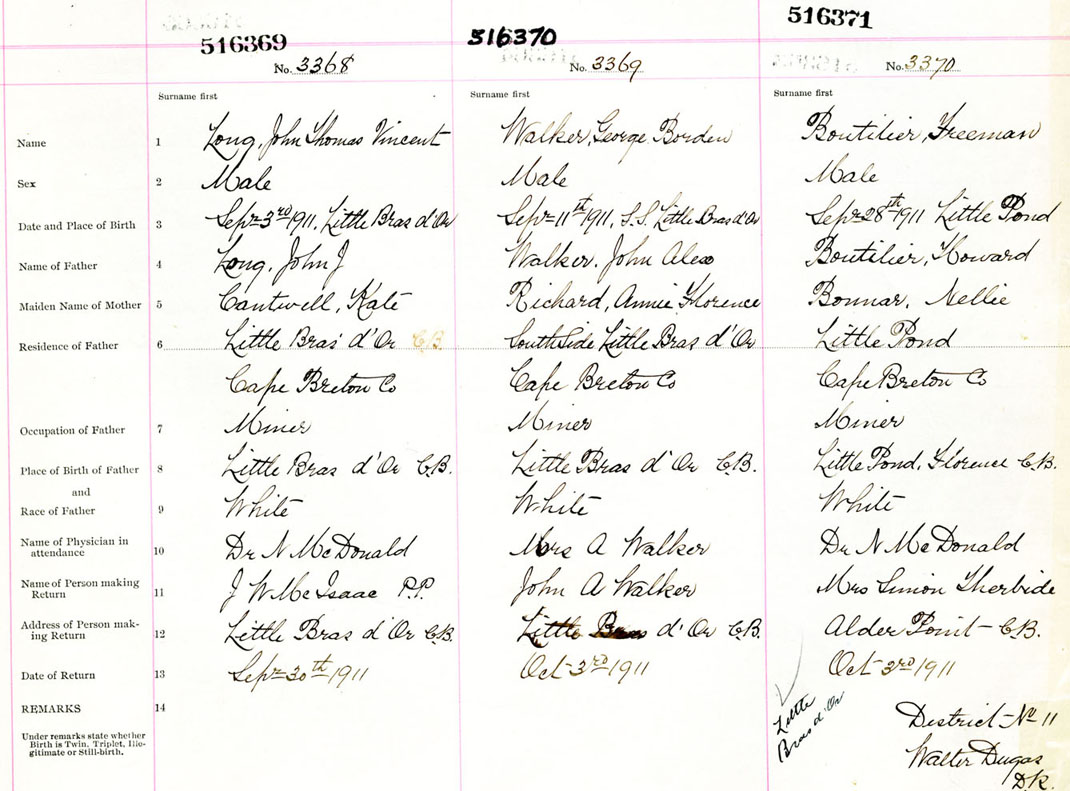 516369 516370 516371
No. 3368 No. 3369 No. 3370
Surname first Surname first Surname first
Name 1 Long, John Thomas Vincent Walker, George Borden Boutilier, Freeman
Sex 2 Male Male Male
Date and Place of Birth 3 Sept 3rd 1911, Little Bras d'Or Sept 11th 1911, S.S. Little Bras d'Or Sept 28th 1911 Little Pond
Name of Father 4 Long, John J Walker, John Alex Boutilier, Howard
Maiden Name of Mother 5 Cantwell, Kate Richard, Annie Florence Bonnar, Nellie
Residence of Father 6 Little Bras d'Or C.B. South Side Little Bras d'Or Little Pond
Cape Breton Co Cape Breton Co Cape Breton Co
Occupation of Father 7 Miner Miner Miner
Place of Birth of Father 8 Little Bras d'Or C.B. Little Bras d'Or C.B. Little Pond, Florence C.B.
and
Race of Father 9 White White White
Name of Physician in attendance 10 Dr N McDonald Mrs A Walker Dr N McDonald
Name of Person making Return 11 J W McIsaac P.P. John A Walker Mrs Simon
Address of Person making Return 12 Little Bras d'Or C.B. Little Bras d'Or C.B. Alder Point C.B.
Date of Return 13 Sept 30th 1911 Oct 3rd 1911 Oct 3rd 1911
REMARKS 14
Little
Bras d'Or
District No 11
Under remarks state whether
Birth is Twin, Triplet, Ille-
gitimate or Still-birth.
Walter Dugas
D.R.